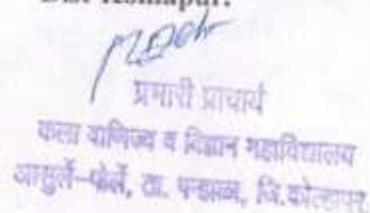 Dist Kolhapur.
प्रभारी प्राचार्य
कला वाणिज्य व विज्ञान महाविद्यालय
आसुर्ले-पोर्ले, ता. पन्हाळा, जि.कोल्हापूर